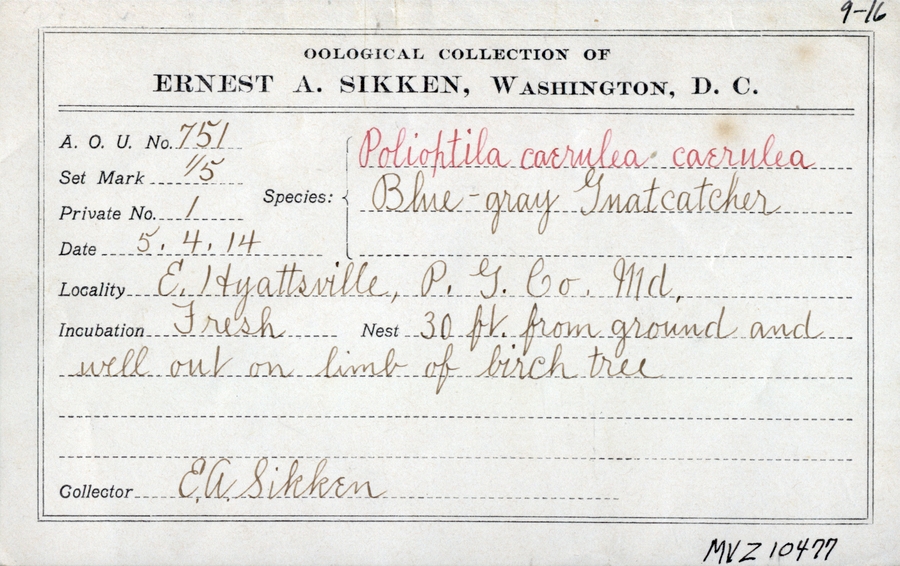 9-16
OOLOGICAL COLLECTION OF
ERNEST A. SIKKEN, WASHINGTON, D. C.
A. O. U. No. 751
Set Mark 1/5
Private No. 1
Date 5. 4. 14
Species: Polioptila caerulea caerulea
Blue-gray Gnatcatcher
Locality E. Hyattsville, P. G. Co. Md.
Incubation Fresh Nest 30 ft. from ground and
well out on limb of birch tree
Collector E.A. Sikken
MVZ 10477